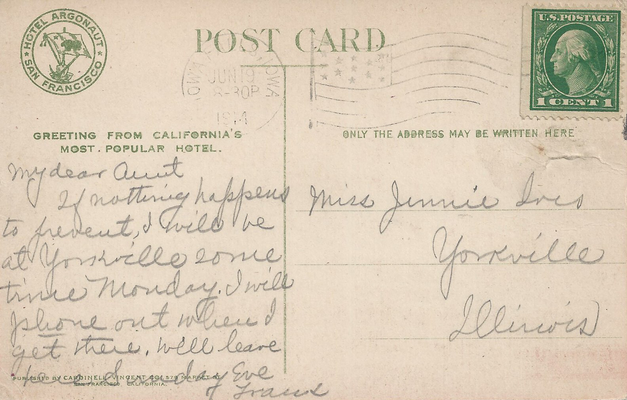 HOTEL ARGONAUT
SAN FRANCISCO
POST CARD
IOWA
JUN 19
-30P
1914
U.S. POSTAGE
1 CENT 1
GREETING FROM CALIFORNIA'S
MOST POPULAR HOTEL.
ONLY THE ADDRESS MAY BE WRITTEN HERE
My dear Aunt
If nothing happens
to prevent, I will be
at Yorkville some
time Monday. I will
phone out when I
get there. Will leave
day Eve
Miss Jennie Ives
Yorkville
Illinois
PUBLISHED BY CARDINELL-VINCENT CO.
SAN FRANCISCO, CALIFORNIA.